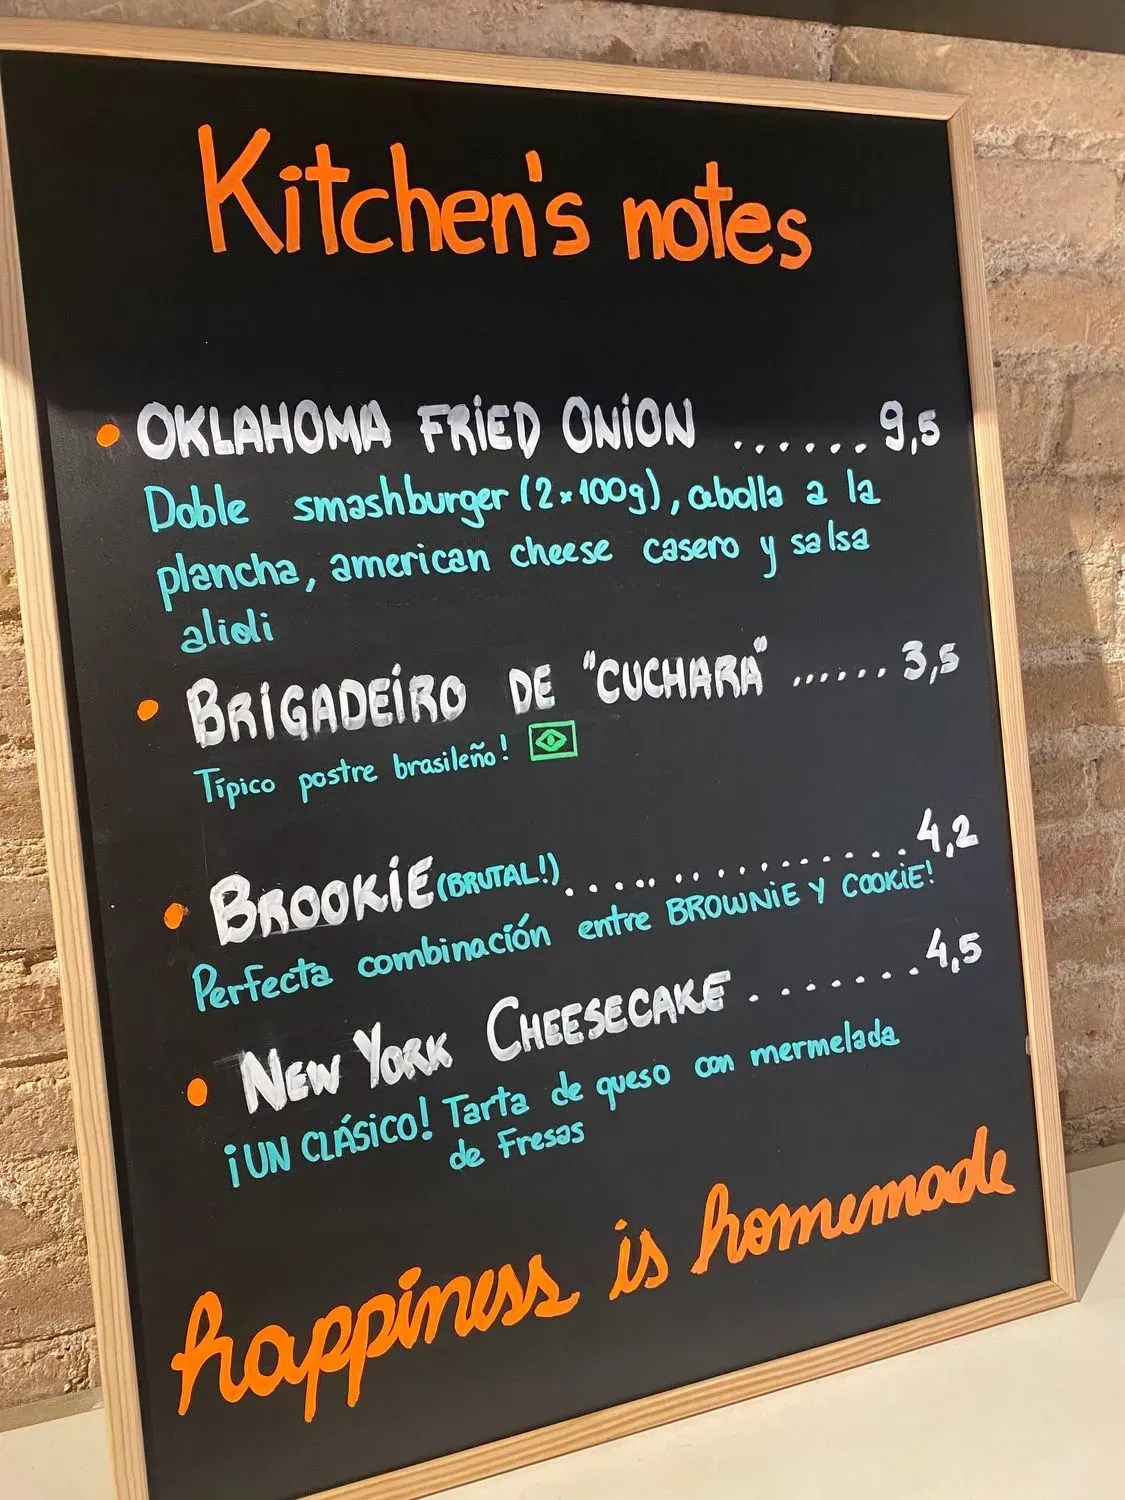 Kitchen's notes
• OKLAHOMA FRIED ONION ...... 9,5
Doble smashburger (2x100g), cebolla a la
plancha, american cheese casero y salsa
alioli
• BRIGADEIRO DE "CUCHARA" ...... 3,5
Típico postre brasileño!
• BROOKIE (BRUTAL!) .............. 4,2
Perfecta combinación entre BROWNIE Y COOKIE!
• NEW YORK CHEESECAKE ....... 4,5
¡UN CLÁSICO! Tarta de queso con mermelada
de Fresas
happiness is homemade